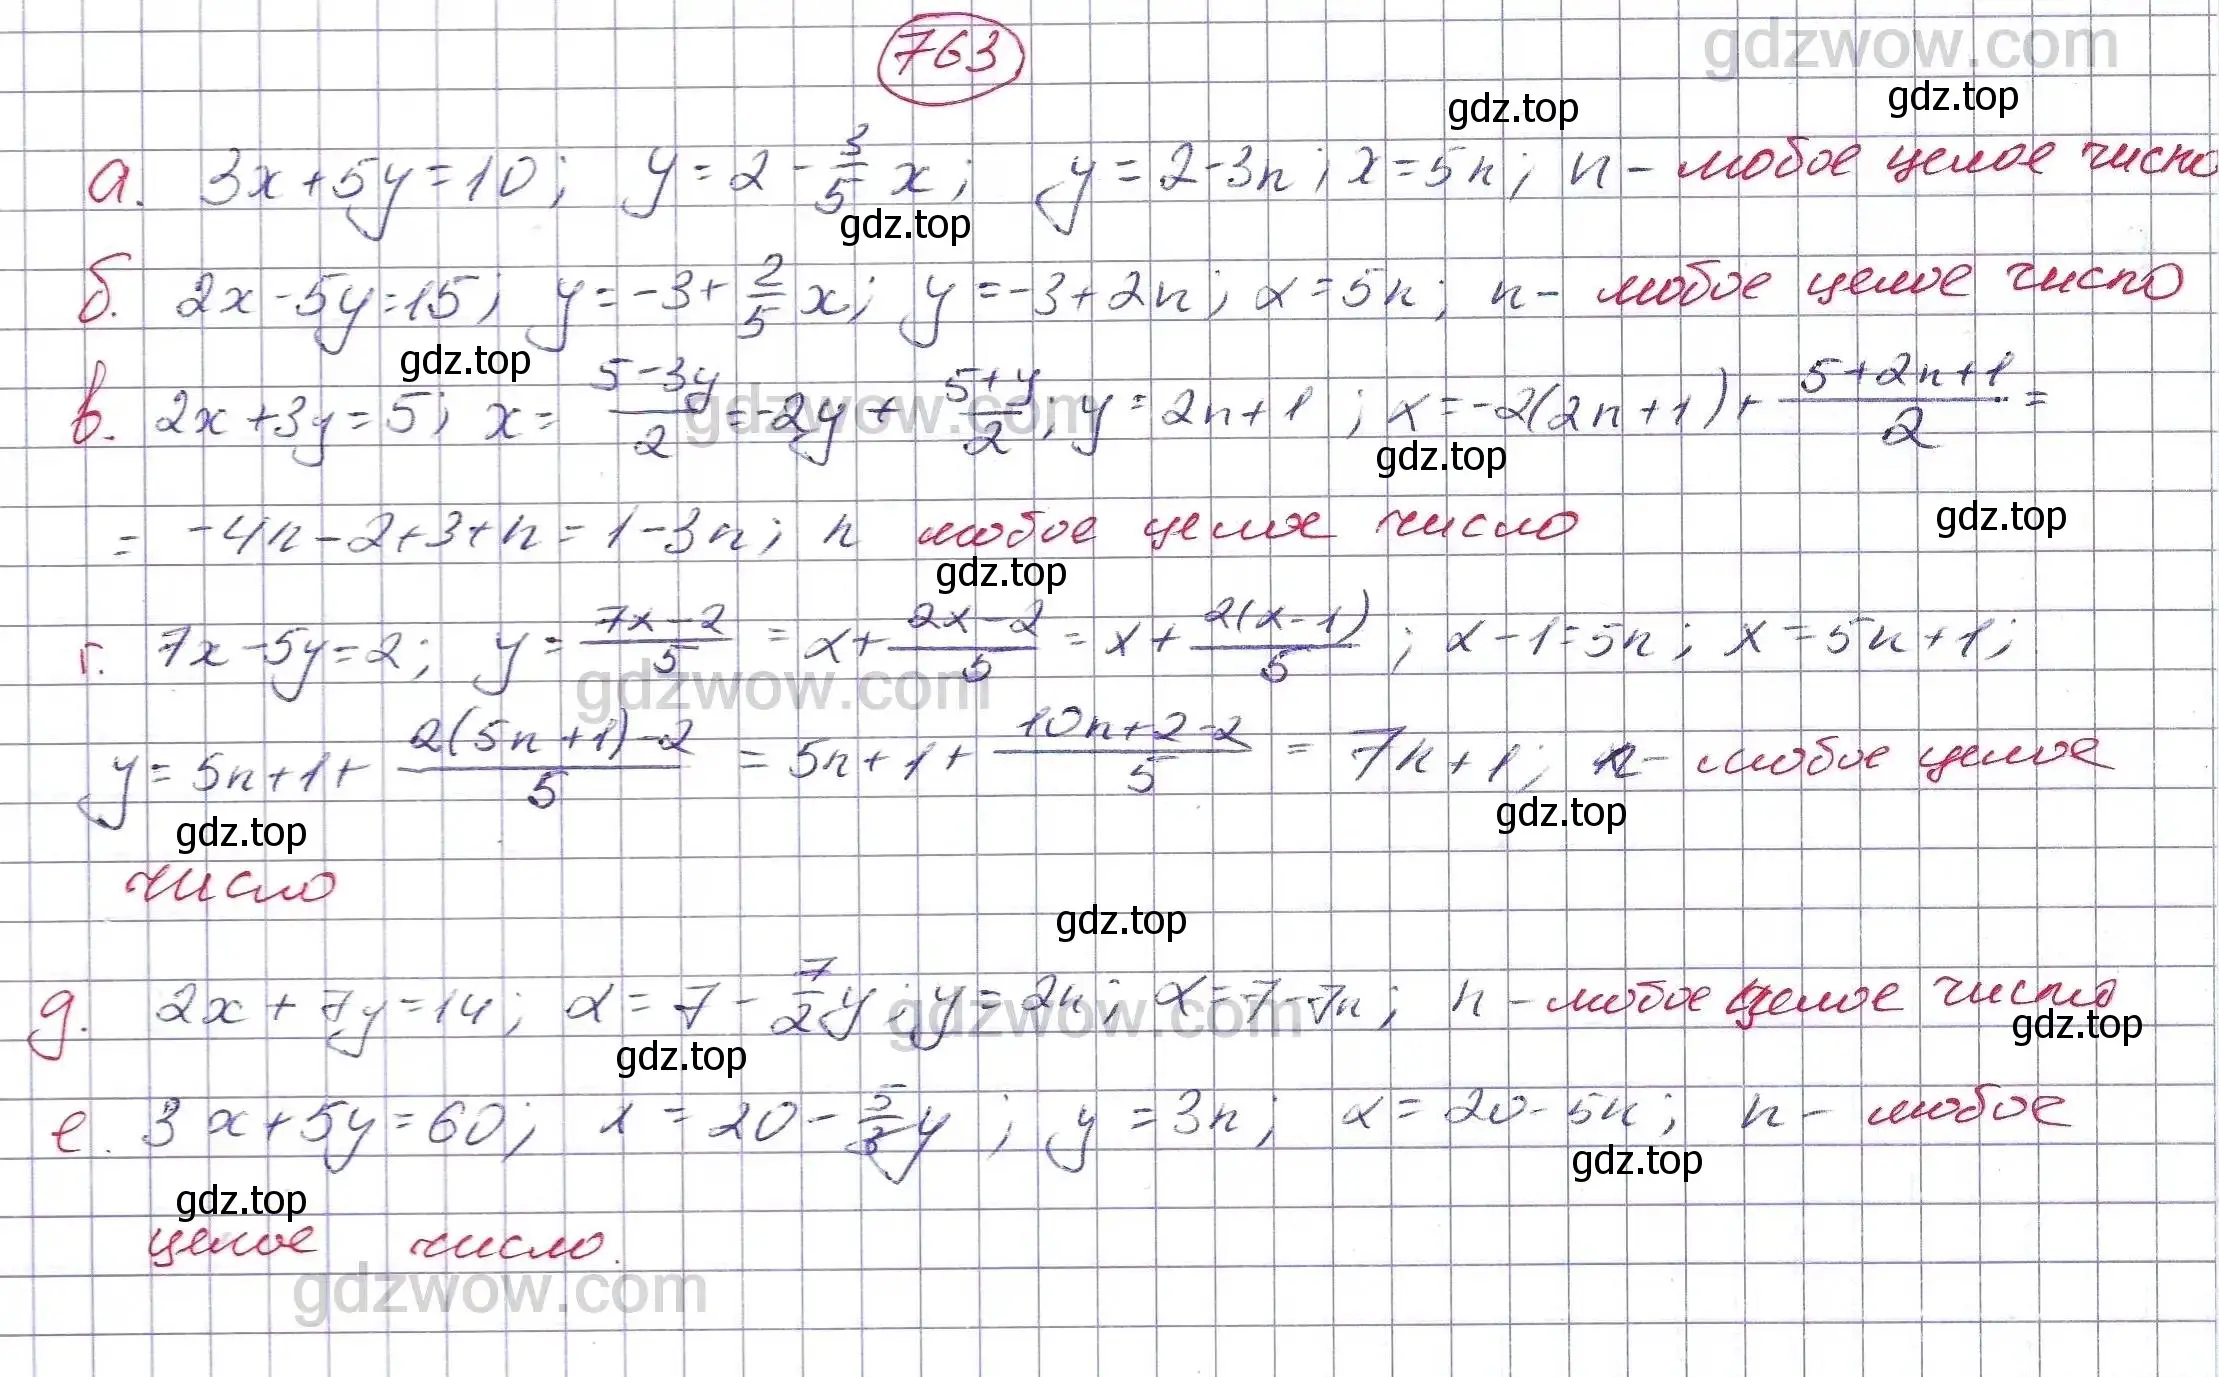 763
gdzwow.com
gdz.top gdz.top
а. 3x+5y=10; y=2-3/5 x; y=2-3n; x=5n; n- любое целое число
gdz.top
б. 2x-5y=15; y=-3+2/5 x; y=-3+2n; x=5n; n- любое целое число
gdz.top
в. 2x+3y=5; x=(5-3y)/2=-2y+(5+y)/2; y=2n+1; x=-2(2n+1)+(5+2n+1)/2=
gdzwow.com
gdz.top
= -4n-2+3+n=1-3n; n любое целое число
gdz.top
gdz.top
г. 7x-5y=2; y=(7x-2)/5=x+(2x-2)/5=x+2(x-1)/5; x-1=5n; x=5n+1;
gdzwow.com
y=5n+1+(2(5n+1)-2)/5=5n+1+(10n+2-2)/5=7n+1; n- любое целое
gdz.top gdz.top
число
gdz.top
д. 2x+7y=14; x=7-7/2 y; y=2n; x=7-7n; n- любое целое число
gdzwow.com
gdz.top gdz.top
е. 3x+5y=60; x=20-5/3 y; y=3n; x=20-5n; n- любое
gdz.top
gdz.top
целое число.
gdzwow.com